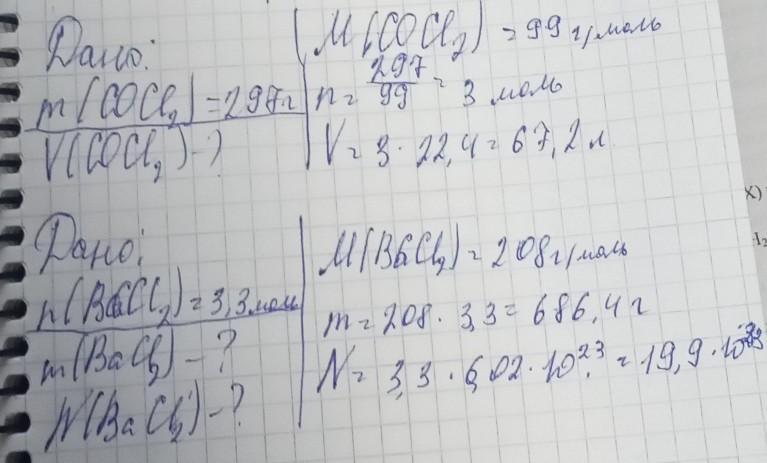 Дано:
m(COCl₂) = 297г
V(COCl₂) - ?
M(COCl₂) = 99 г/моль
n = 297/99 = 3 моль
V = 3 · 22,4 = 67,2 л
Дано:
n(BaCl₂) = 3,3 моль
m(BaCl₂) - ?
N(BaCl₂) - ?
M(BaCl₂) = 208 г/моль
m = 208 · 3,3 = 686,4 г
N = 3,3 · 6,02 · 10²³ = 19,9 · 10²³
х)